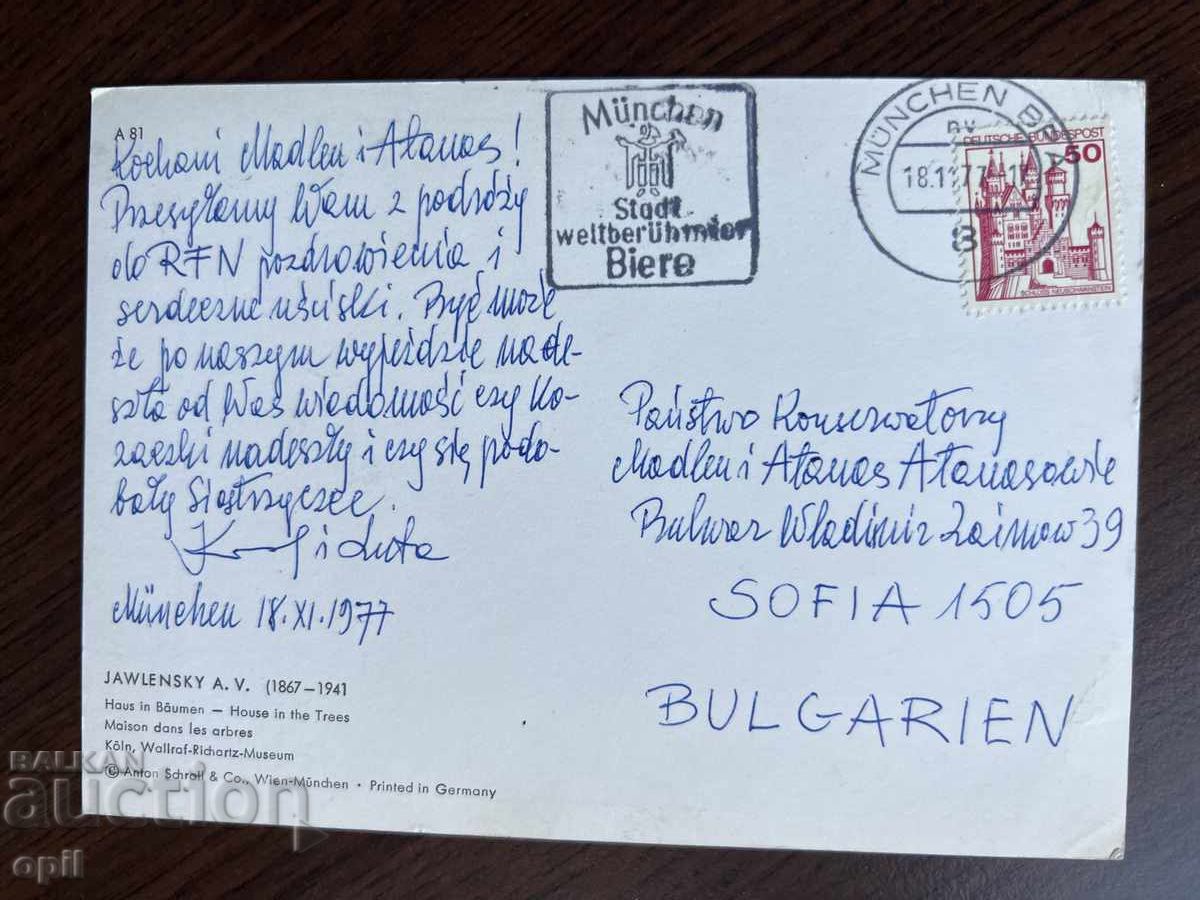 A 81
Kochani Madlen i Atanas!
Przesyłamy Wam z podróży
do RFN pozdrowienia i
serdeczne uściski. Być może
że po naszym wyjeździe nade-
szła od Was wiadomość czy ko-
zaczki nadeszły i czy się podo-
bały Siostrzyczce.
i
München 18.XI.1977
JAWLENSKY A. V. (1867–1941
Haus in Bäumen – House in the Trees
Maison dans les arbres
Köln, Wallraf-Richartz-Museum
© Anton Schroll & Co., Wien-München • Printed in Germany
München
Stadt
weltberühmter
Biere
MÜNCHEN
18.1 77
8
DEUTSCHE BUNDESPOST
50
SCHLOSS NEUSCHWANSTEIN
Państwo Konserwatorzy
Madlen i Atanas Atanasowie
Bulwar Wladimir Zaimow 39
SOFIA 1505
BULGARIEN
BALKAN
auction
opil